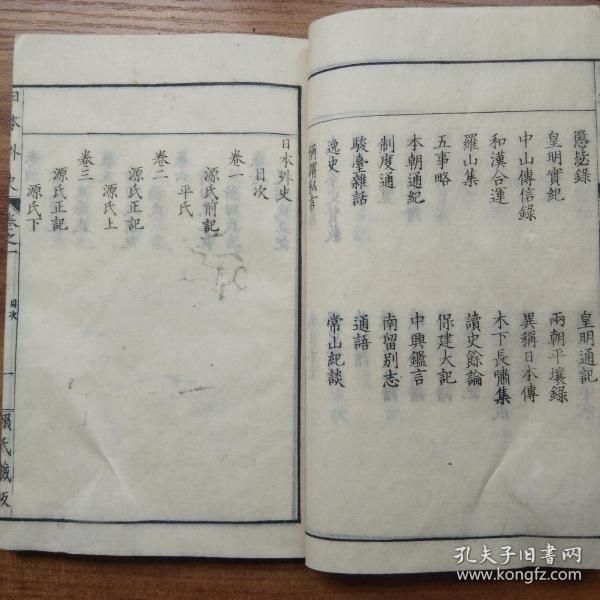 懲毖録
皇明通記
皇明實紀
兩朝平壤録
中山傳信録
異稱日本傳
和漢合運
木下長嘯集
羅山集
讀史餘論
五事略
保建大記
本朝通紀
中興鑑言
制度通
南留別志
駿臺雜話
通語
逸史
常山紀談
日本外史
目次
卷一
源氏前記
平氏
卷二
源氏正記
源氏上
卷三
源氏正記
源氏下
日本外史
卷之一
目次
一
賴氏藏版
孔夫子旧書网
www.kongfz.com